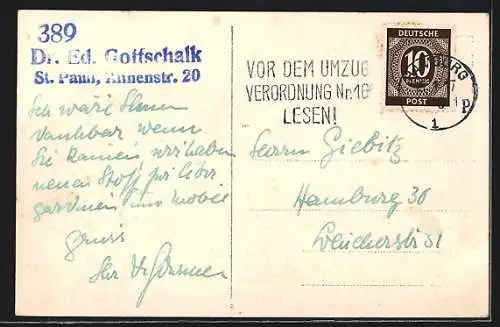 389
Dr. Ed. Gottschalk
St. Pauli, Annenstr. 20
DEUTSCHE
10
PFENNIG
POST
VOR DEM UMZUG
VERORDNUNG Nr. 16
LESEN!
BURG
1
Ich wäre Ihnen
dankbar wenn
Sie kämen wir haben
neuen Stoff für
gardinen und möbel
Gruss
Ihr
Herrn Giebitz
Hamburg 36
31